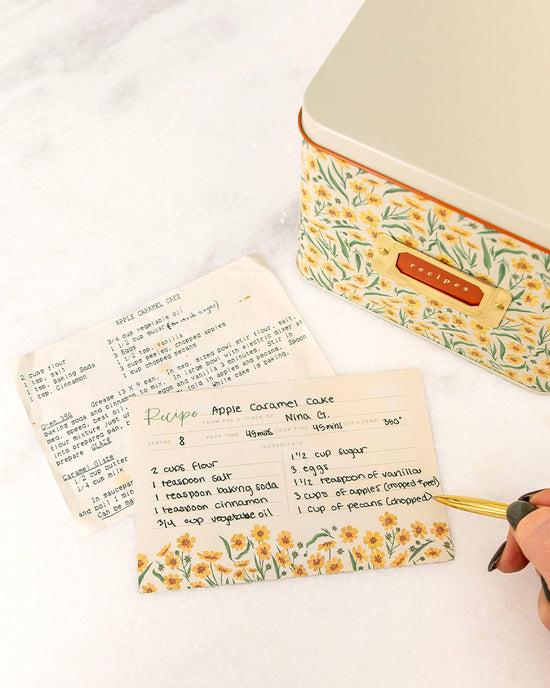 recipes
APPLE CARAMEL CAKE
2 cups flour
1 tsp. salt
1 tsp. Baking Soda
1 tsp. Cinnamon
3/4 cup vegetable oil
1 1/2 cup sugar
3 Eggs
1 1/2 tsp. vanilla
3 cups peeled, chopped apples
1 cup chopped pecans
Oven 350
Grease 13 X 9 pan. In med. sized bowl stir flour, salt,
baking soda and cinnamon to mix. In large bowl with electric mixer at
med. speed, beat oil, eggs and vanilla 3 minutes. Stir in
flour mixture just fold in apples and pecans. Spoon
into prepared pan. While cake is baking,
prepare GLAZE
Caramel Glaze
1/2 cup butter
1/4 cup milk
In saucepan
and boil 1 min
Can be
Recipe Apple Caramel Cake
FROM THE KITCHEN OF Nina G.
SERVES 8 PREP TIME 45 mins COOK TIME 45 mins OVEN TEMP 350°
INGREDIENTS
2 cups flour
1 teaspoon salt
1 teaspoon baking soda
1 teaspoon cinnamon
3/4 cup vegetable oil
1 1/2 cup sugar
3 eggs
1 1/2 teaspoon of vanilla
3 cups of apples
1 cup of pecans (chopped)